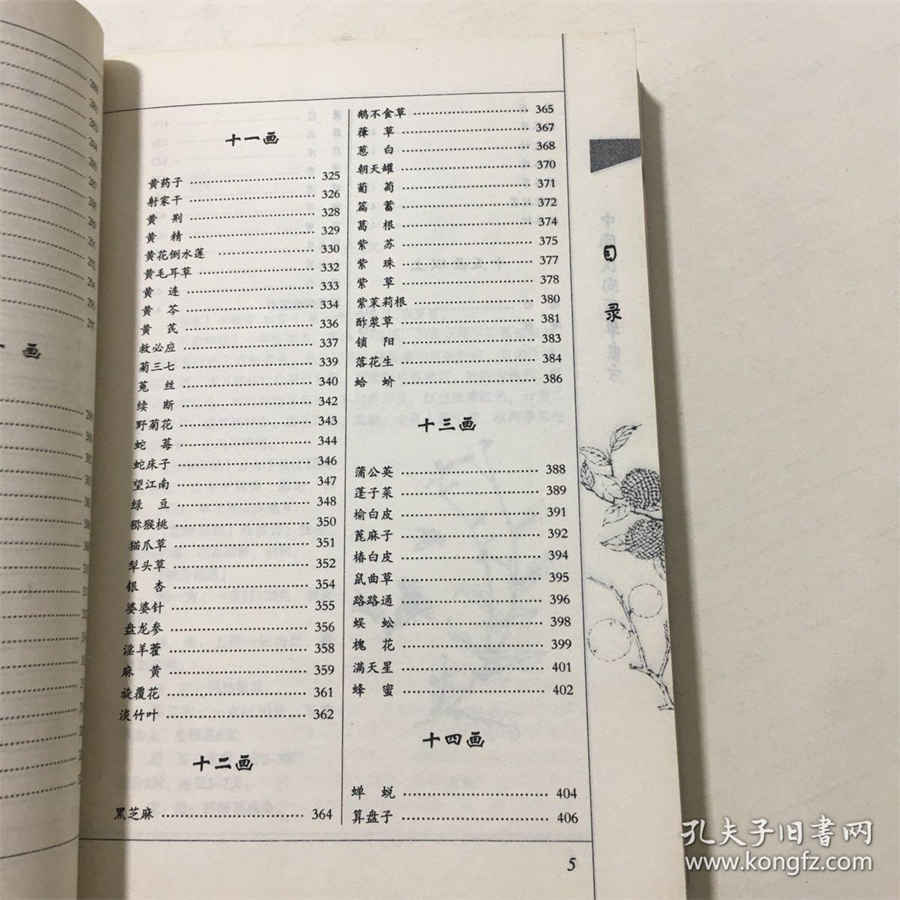 十一画
黄药子 325
射家干 326
黄荆 328
黄精 329
黄花倒水莲 330
黄毛耳草 332
黄连 333
黄芩 334
黄芪 336
救必应 337
菊三七 339
菟丝 340
续断 342
野菊花 343
蛇莓 344
蛇床子 346
望江南 347
绿豆 348
猕猴桃 350
猫爪草 351
犁头草 352
银杏 354
婆婆针 355
盘龙参 356
淫羊藿 358
麻黄 359
旋覆花 361
淡竹叶 362
十二画
黑芝麻 364
鹅不食草 365
葎草 367
葱白 368
朝天罐 370
葡萄 371
萹蓄 372
葛根 374
紫苏 375
紫珠 377
紫草 378
紫茉莉根 380
酢浆草 381
锁阳 383
落花生 384
蛤蚧 386
十三画
蒲公英 388
蓬子菜 389
榆白皮 391
蓖麻子 392
椿白皮 394
鼠曲草 395
路路通 396
蜈蚣 398
槐花 399
满天星 401
蜂蜜 402
十四画
蝉蜕 404
算盘子 406
目录
5
孔夫子旧书网
www.kongfz.com